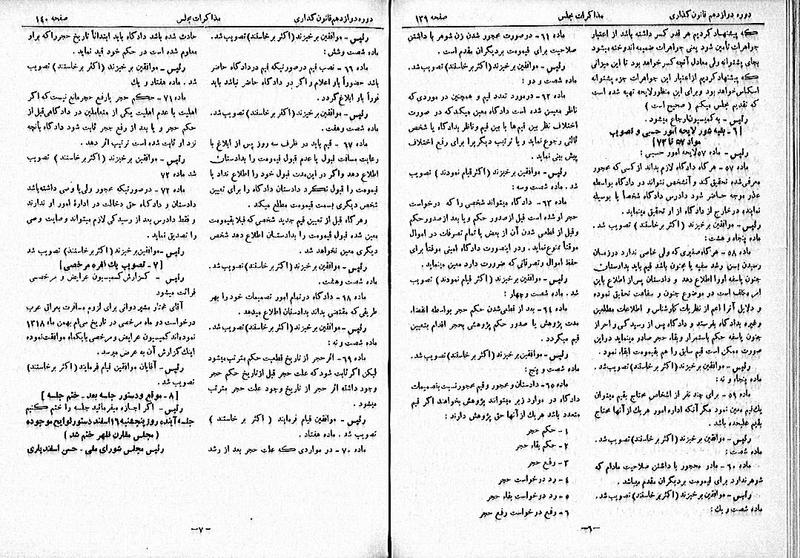 دوره دوازدهم قانون گذاری
مذاکرات مجلس
صفحه ۱۳۹
که پیشنهاد کردیم هر قدر کسر داشته باشد از اعتبار
جواهرات تأمین شود یعنی جواهرات ضمیمه اندوخته میشود
بجای پشتوانه ولی معادل آنچه کسر خواهد بود تا این میزانی
که پیشنهاد کردیم از اعتبار این جواهرات جزء پشتوانه
اسکناس خواهد بود و برای این منظور لایحه تهیه شده است
که تقدیم مجلس میکنم (صحیح است)
رئیس - به کمیسیون ارجاع میشود.
[۶ - بقیه شور لایحه امور حسبی و تصویب
مواد ۵۷ تا ۷۳]
رئیس - ماده ۵۷ لایحه امور حسبی :
ماده ۵۷ - هر گاه دادگاه لازم بداند از کسی که محجور
معرفی شده تحقیق کند و آنشخص نتواند در دادگاه بواسطه
عذر موجه حاضر شود دادرس دادگاه شخصاً یا بوسیله
نماینده در خارج از دادگاه از او تحقیق مینماید.
رئیس - موافقین برخیزند (اکثر برخاستند) تصویب شد.
ماده پنجاه و هشت :
ماده ۵۸ - هر گاه صغیری که ولی خاص ندارد در زمان
رسیدن بسن رشد سفیه یا مجنون باشد قیم باید بدادستان
جنون یا سفه او را اطلاع دهد و دادستان پس از اطلاع باین
امر مکلف است در موضوع جنون و سفاهت تحقیق نموده
و دلایل آنرا اعم از نظریات کارشناس و اطلاعات مطلعین
و غیره بدادگاه بفرستد و دادگاه پس از رسیدگی و احراز
جنون یا سفه حکم باستمرار و بقاء حجر صادر مینماید در این
صورت ممکن است قیم سابق را هم بقیمومت ابقاء نمود.
رئیس - موافقین برخیزند (اکثر برخاستند) تصویب شد.
ماده پنجاه و نه :
ماده ۵۹ - برای چند نفر از اشخاص محتاج بقیم میتوان
یک قیم معین نمود مگر آنکه اداره امور هر یک از آنها محتاج
بقیم علیحده باشد.
رئیس - موافقین برخیزند (اکثر برخاستند) تصویب شد.
ماده شصت :
ماده ۶۰ - مادر محجور با داشتن صلاحیت مادام که
شوهر ندارد برای قیمومت بر دیگران مقدم میباشد.
رئیس - موافقین برخیزند (اکثر برخاستند) تصویب شد.
ماده شصت و یک :
ماده ۶۱ - در صورت محجور شدن زن شوهر با داشتن
صلاحیت برای قیمومت بر دیگران مقدم است.
رئیس - موافقین برخیزند (اکثر برخاستند) تصویب شد.
ماده شصت و دو :
ماده ۶۲ - در مورد تعدد قیم و همچنین در موردی که
ناظر معین شده است دادگاه معین میکند که در صورت
اختلاف نظر بین قیم ها یا بین قیم و ناظر بدادگاه یا شخص
ثالثی رجوع نمایند و یا ترتیب دیگر را برای رفع اختلاف
پیش بینی نماید.
رئیس - موافقین برخیزند (اکثر قیام نمودند) تصویب
شد. ماده شصت و سه :
ماده ۶۳ - دادگاه میتواند شخصی را که درخواست
حجر او شده است قبل از صدور حکم و یا بعد از صدور حکم
وقبل از قطعی شدن آن از بعض یا تمام تصرفات در اموال
موقتاً ممنوع نماید. و در اینصورت دادگاه امینی موقتاً برای
حفظ اموال و تصرفاتی که ضرورت دارد معین مینماید.
رئیس - موافقین برخیزند (اکثر قیام نمودند) تصویب
شد. ماده شصت و چهار :
ماده ۶۴ - بعد از قطعی شدن حکم حجر بواسطه انقضاء
مدت پژوهش یا صدور حکم پژوهش بحجر اقدام بتعیین
قیم میگردد.
رئیس - موافقین برخیزند (اکثر برخاستند) تصویب شد.
ماده شصت و پنج :
ماده ۶۵ - دادستان و محجور و قیم محجور نسبت بتصمیمات
دادگاه در موارد زیر میتوانند پژوهش بخواهند اگر قیم
متعدد باشد هر یک از آنها حق پژوهش دارند :
۱ - حکم حجر
۲ - حکم بقاء حجر
۳ - رفع حجر
۴ - رد درخواست حجر
۵ - رد درخواست بقاء حجر
۶ - رفع درخواست رفع حجر
-۶-
دوره دوازدهم قانون گذاری
مذاکرات مجلس
صفحه ۱۴۰
رئیس - موافقین برخیزند (اکثر برخاستند) تصویب شد.
ماده شصت و شش :
ماده ۶۶ - نصب قیم در صورتیکه قیم در دادگاه حاضر
باشد حضوراً باو اعلام و اگر در دادگاه حاضر نباشد باید
فوراً باو ابلاغ گردد.
رئیس - موافقین برخیزند (اکثر برخاستند) تصویب شد.
ماده شصت و هفت :
ماده ۶۷ - قیم باید در ظرف سه روز پس از ابلاغ با
رعایت مسافت قبول یا عدم قبول قیمومت را بدادستان
اطلاع دهد و اگر در این مدت قبول خود را اطلاع نداد یا
قیمومت را قبول نکرد دادستان دادگاه را برای تعیین
شخص دیگری بسمت قیمومت مطلع میکند.
و هر گاه قبل از تعیین قیم جدید شخصی که قبلا بقیمومت
معین شده قبول قیمومت را بدادستان اطلاع دهد شخص
دیگری معین نخواهد شد.
رئیس - موافقین برخیزند (اکثر برخاستند) تصویب شد.
ماده شصت و هشت.
ماده ۶۸ - دادگاه در تمام امور تصمیمات خود را بهر
طریقی که مقتضی بداند بدادستان اطلاع میدهد.
رئیس - موافقین برخیزند (اکثر برخاستند) تصویب شد.
ماده شصت و نه :
ماده ۶۹ - اثر حجر از تاریخ قطعیت حکم مترتب میشود
لیکن اگر ثابت شود که علت حجر قبل از تاریخ حکم حجر
وجود داشته اثر حجر از تاریخ وجود علت حجر مترتب
میشود.
رئیس - موافقین قیام فرمایند (اکثر برخاستند)
تصویب شد. ماده هفتاد.
ماده ۷۰ - در مواردی که علت حجر بعد از رشد
حادث شده باشد دادگاه باید ابتداء تاریخ حجر را که بر او
معلوم شده است در حکم خود قید نماید.
رئیس - موافقین برخیزند (اکثر برخاستند) تصویب
شد. ماده هفتاد و یک
ماده ۷۱ - حکم حجر یا رفع حجر مانع نیست که اگر
اهلیت یا عدم اهلیت یکی از متعاملین در دادگاهی قبل از
حکم حجر و یا بعد از رفع حجر ثابت شود دادگاه بآنچه
نزد او ثابت شده است ترتیب اثر دهد.
رئیس - موافقین برخیزند (اکثر برخاستند) تصویب
شد ماده ۷۲
ماده ۷۲ - در صورتیکه محجور ولی یا وصی داشته باشد
دادستان و دادگاه حق دخالت در اداره امور او ندارند
و فقط دادرس بعد از رسیدگی لازم میتواند وصایت وصی
را تصدیق نماید.
رئیس - موافقین برخیزند (اکثر برخاستند) تصویب شد
[۷ - تصویب یک فقره مرخصی]
رئیس - گزارش کمیسیون عرایض و مرخصی
قرائت میشود
درخواست دو ماه مرخصی در تاریخ سی ام بهمن ماه ۱۳۱۸
نموده اند کمیسیون عرایض و مرخصی با یکماه موافقت نموده
اینک گزارش آن به عرض میرسد.
رئیس - آقایان موافقین قیام فرمایند (اکثر برخاستند)
تصویب شد.
[۸ - موقع و دستور جلسه بعد - ختم جلسه]
رئیس - اگر اجازه میفرمائید جلسه را ختم کنیم
جلسه آینده روز پنجشنبه ۱۶ اسفند دستور لوایح موجوده
(مجلس مقارن ظهر ختم شد)
رئیس مجلس شورای ملی - حسن اسفندیاری
-۷-